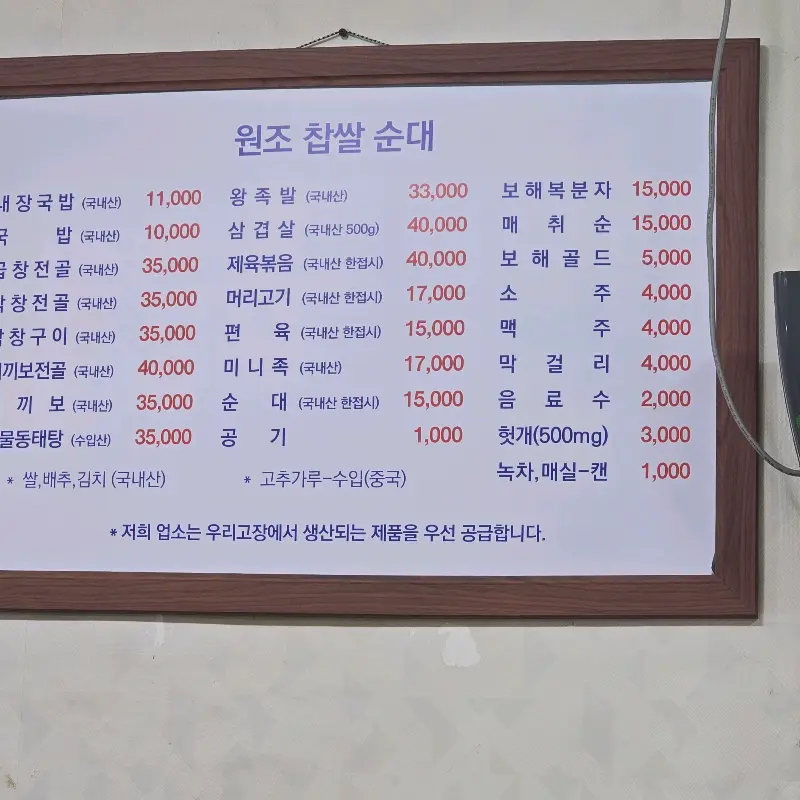 원조 찹쌀 순대
장국밥 (국내산) 11,000
밥 (국내산) 10,000
창전골 (국내산) 35,000
창전골 (국내산) 35,000
창구이 (국내산) 35,000
끼보전골 (국내산) 40,000
끼보 (국내산) 35,000
물동태탕 (수입산) 35,000
왕족발 (국내산) 33,000
삼겹살 (국내산 500g) 40,000
제육볶음 (국내산 한접시) 40,000
머리고기 (국내산 한접시) 17,000
편육 (국내산 한접시) 15,000
미니족 (국내산) 17,000
순대 (국내산 한접시) 15,000
공기 1,000
보해복분자 15,000
매취순 15,000
보해골드 5,000
소주 4,000
맥주 4,000
막걸리 4,000
음료수 2,000
헛개(500mg) 3,000
녹차,매실-캔 1,000
* 쌀,배추,김치 (국내산) * 고추가루-수입(중국)
* 저희 업소는 우리고장에서 생산되는 제품을 우선 공급합니다.